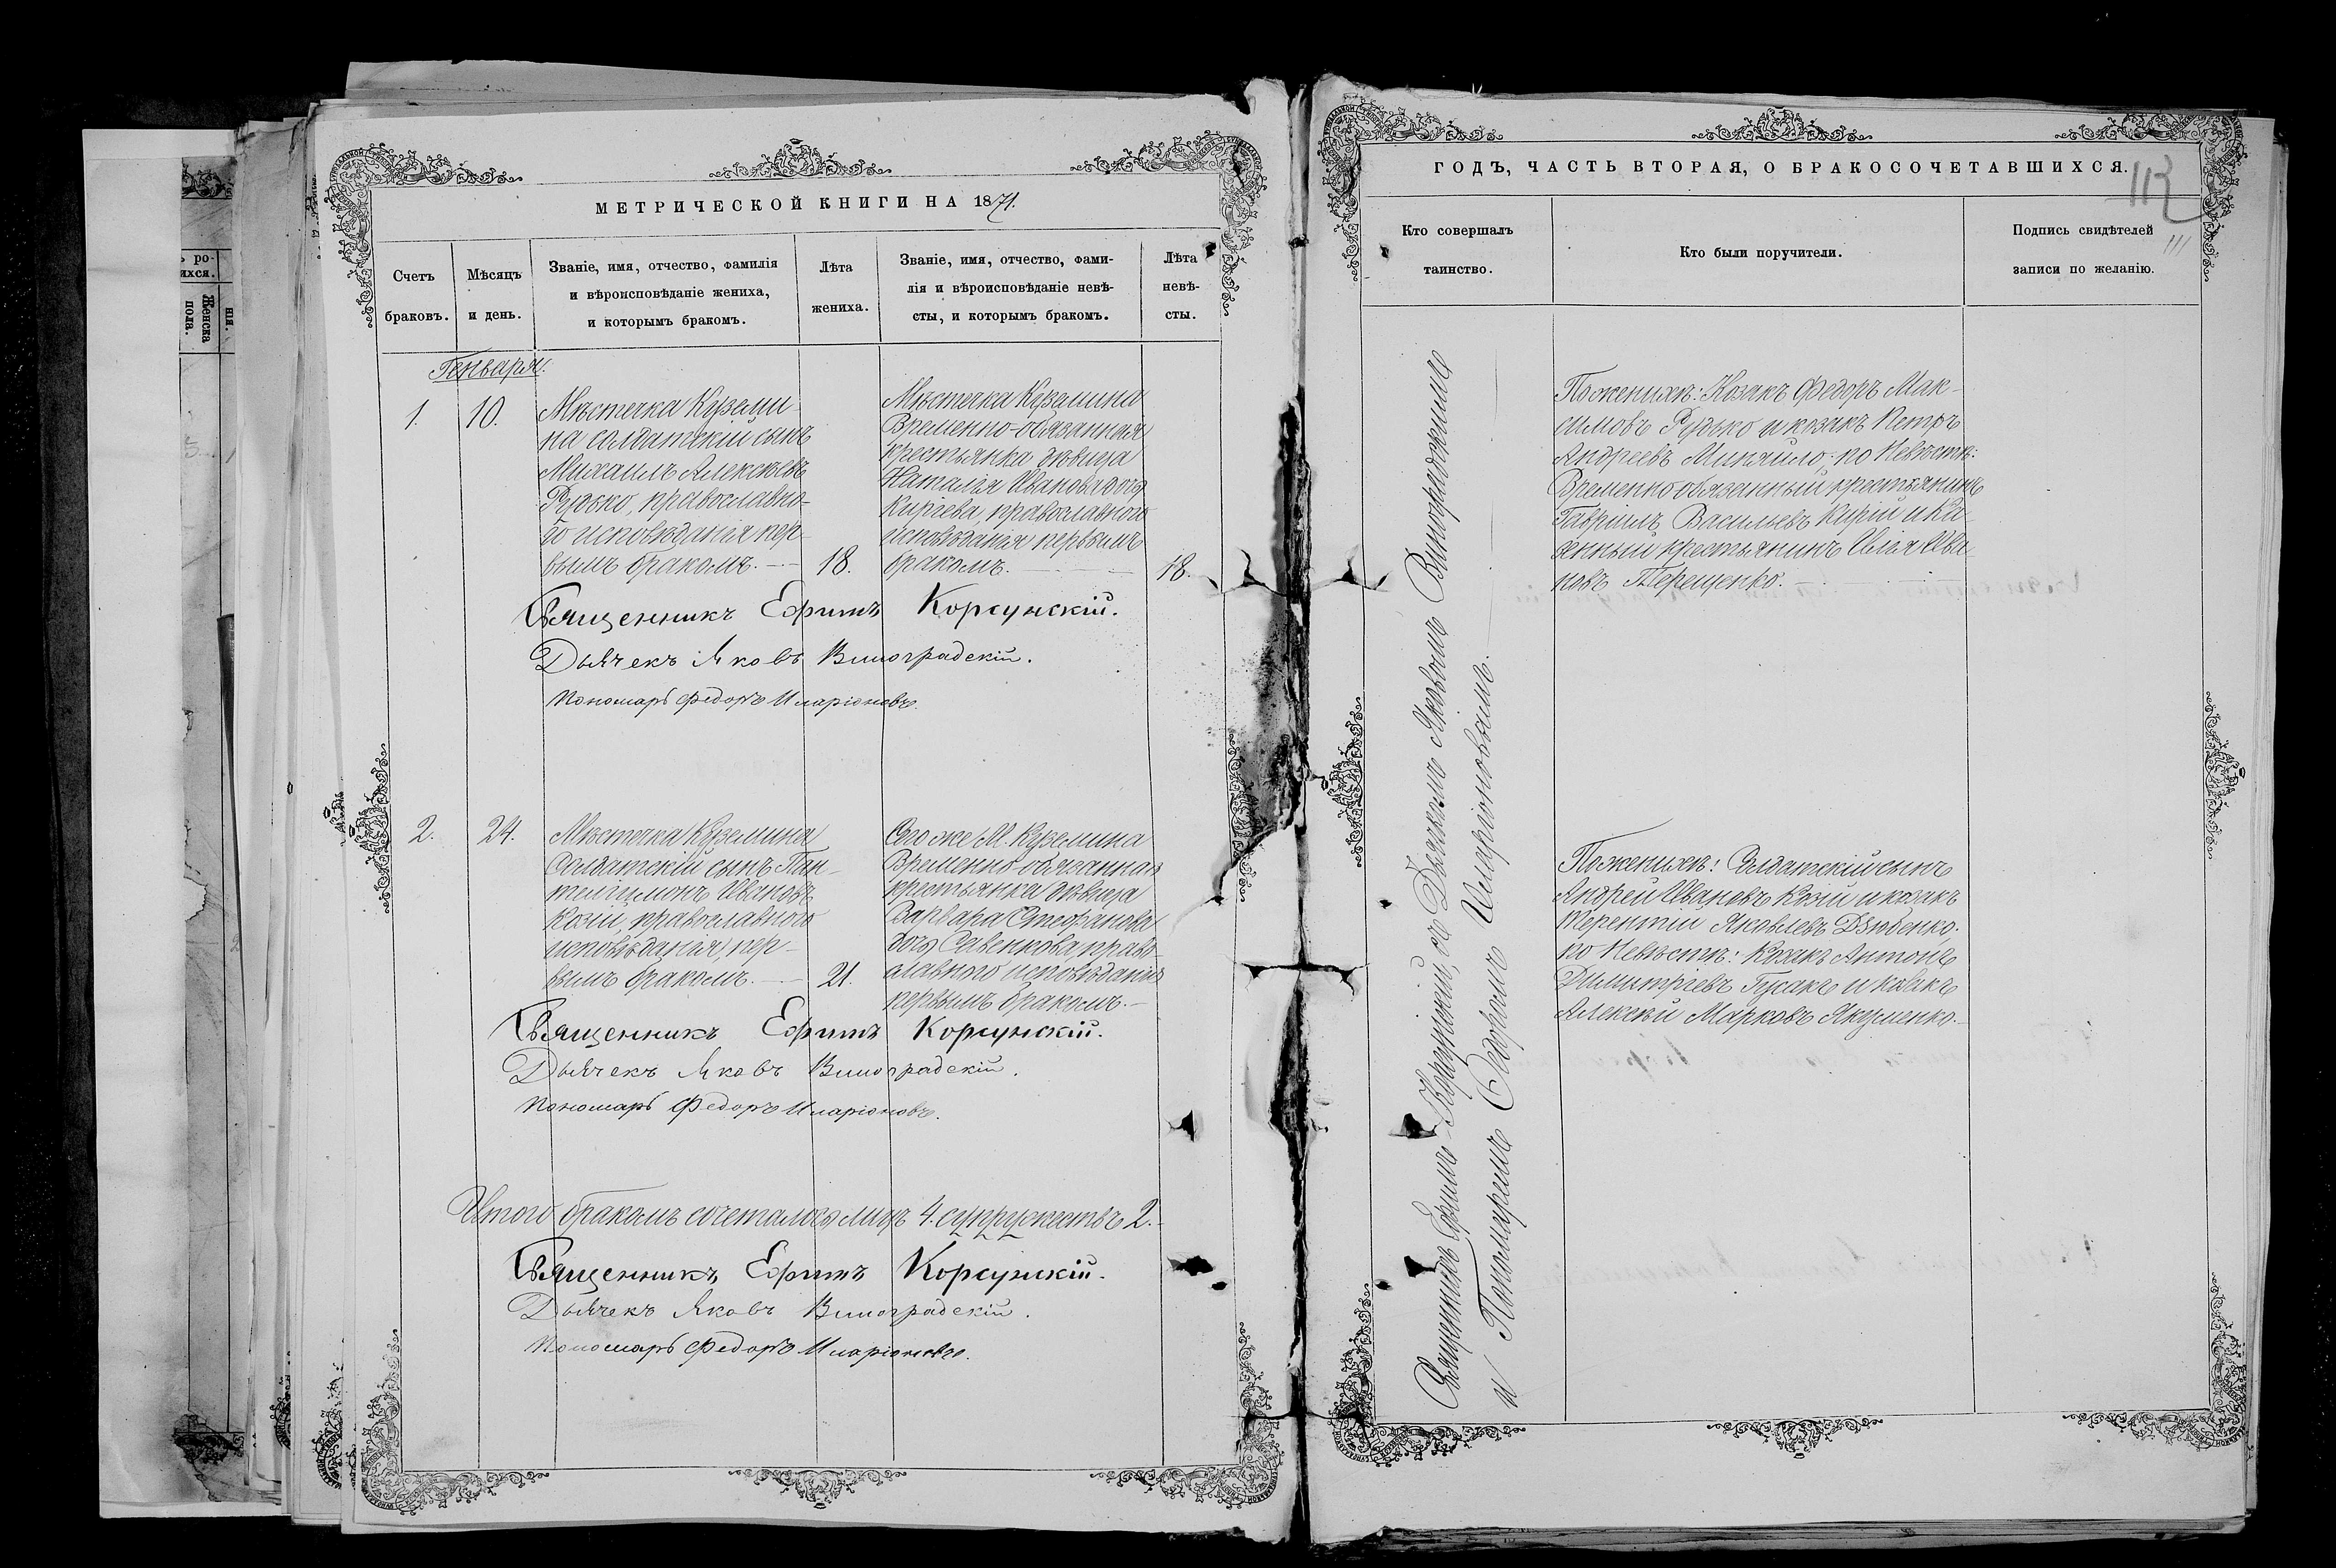 МЕТРИЧЕСКОЙ КНИГИ НА 1871.
Счетъ браковъ.
Мѣсяцъ и день.
Званіе, имя, отчество, фамилія
и вѣроисповѣданіе жениха,
и которымъ бракомъ.
Лѣта
жениха.
Званіе, имя, отчество, фами-
лія и вѣроисповѣданіе невѣ-
сты, и которымъ бракомъ.
Лѣта
невѣ-
сты.
Генваря.
1.
10.
Мѣстечка Куземи-
на солдатскій сынъ
Михаилъ Алексѣевъ
Рудько, православно-
го исповѣданія пер-
вымъ бракомъ.
18.
Мѣстечка Куземина
Временно-обязанная
крестьянка дѣвица
Наталья Иванова дочь
Киріева, православного
исповѣданія первымъ
бракомъ.
18.
Священникъ Ефимъ Корсунскій.
Дьячекъ Яковъ Виноградскій.
Пономарь Федоръ Иларіоновъ.
2.
24.
Мѣстечка Куземина
Солдатскій сынъ Пан-
телеимонъ Ивановъ
Козій, православного
исповѣданія, пер-
вымъ бракомъ.
21.
Того же М. Куземина
Временно-обязанная
крестьянка дѣвица
Варвара Стефанова
дочь Савенкова, право-
славного исповѣданія
первымъ бракомъ.
Священникъ Ефимъ Корсунскій.
Дьячекъ Яковъ Виноградскій.
Пономарь Федоръ Иларіоновъ.
Итого бракомъ сочеталось лицъ 4. супружествъ 2.
Священникъ Ефимъ Корсунскій.
Дьячекъ Яковъ Виноградскій.
Пономарь Федоръ Иларіоновъ.
ГОДЪ, ЧАСТЬ ВТОРАЯ, О БРАКОСОЧЕТАВШИХСЯ.
111
Кто совершалъ
таинство.
Кто были поручители.
Подпись свидѣтелей
записи по желанію.
Священникъ Ефимъ Корсунскій, съ Дьячкомъ Яковомъ Виноградскимъ
и Пономаремъ Федоромъ Иларіоновымъ.
По женихѣ: Козакъ Федоръ Мак-
симовъ Рудько и козакъ Петръ
Андреевъ Михайло; по Невѣстѣ:
Временнообязанный крестьянинъ
Гавріилъ Васильевъ Кирій и Ка-
зенный крестьянинъ Илья Ива-
новъ Терещенко.
По женихѣ: Солдатскій сынъ
Андрей Ивановъ Козій и козакъ
Терентій Яковлевъ Дзюбенко.
по Невѣстѣ: Козакъ Антонъ
Димитріевъ Гусакъ и козакъ
Алексѣй Марковъ Якименко.